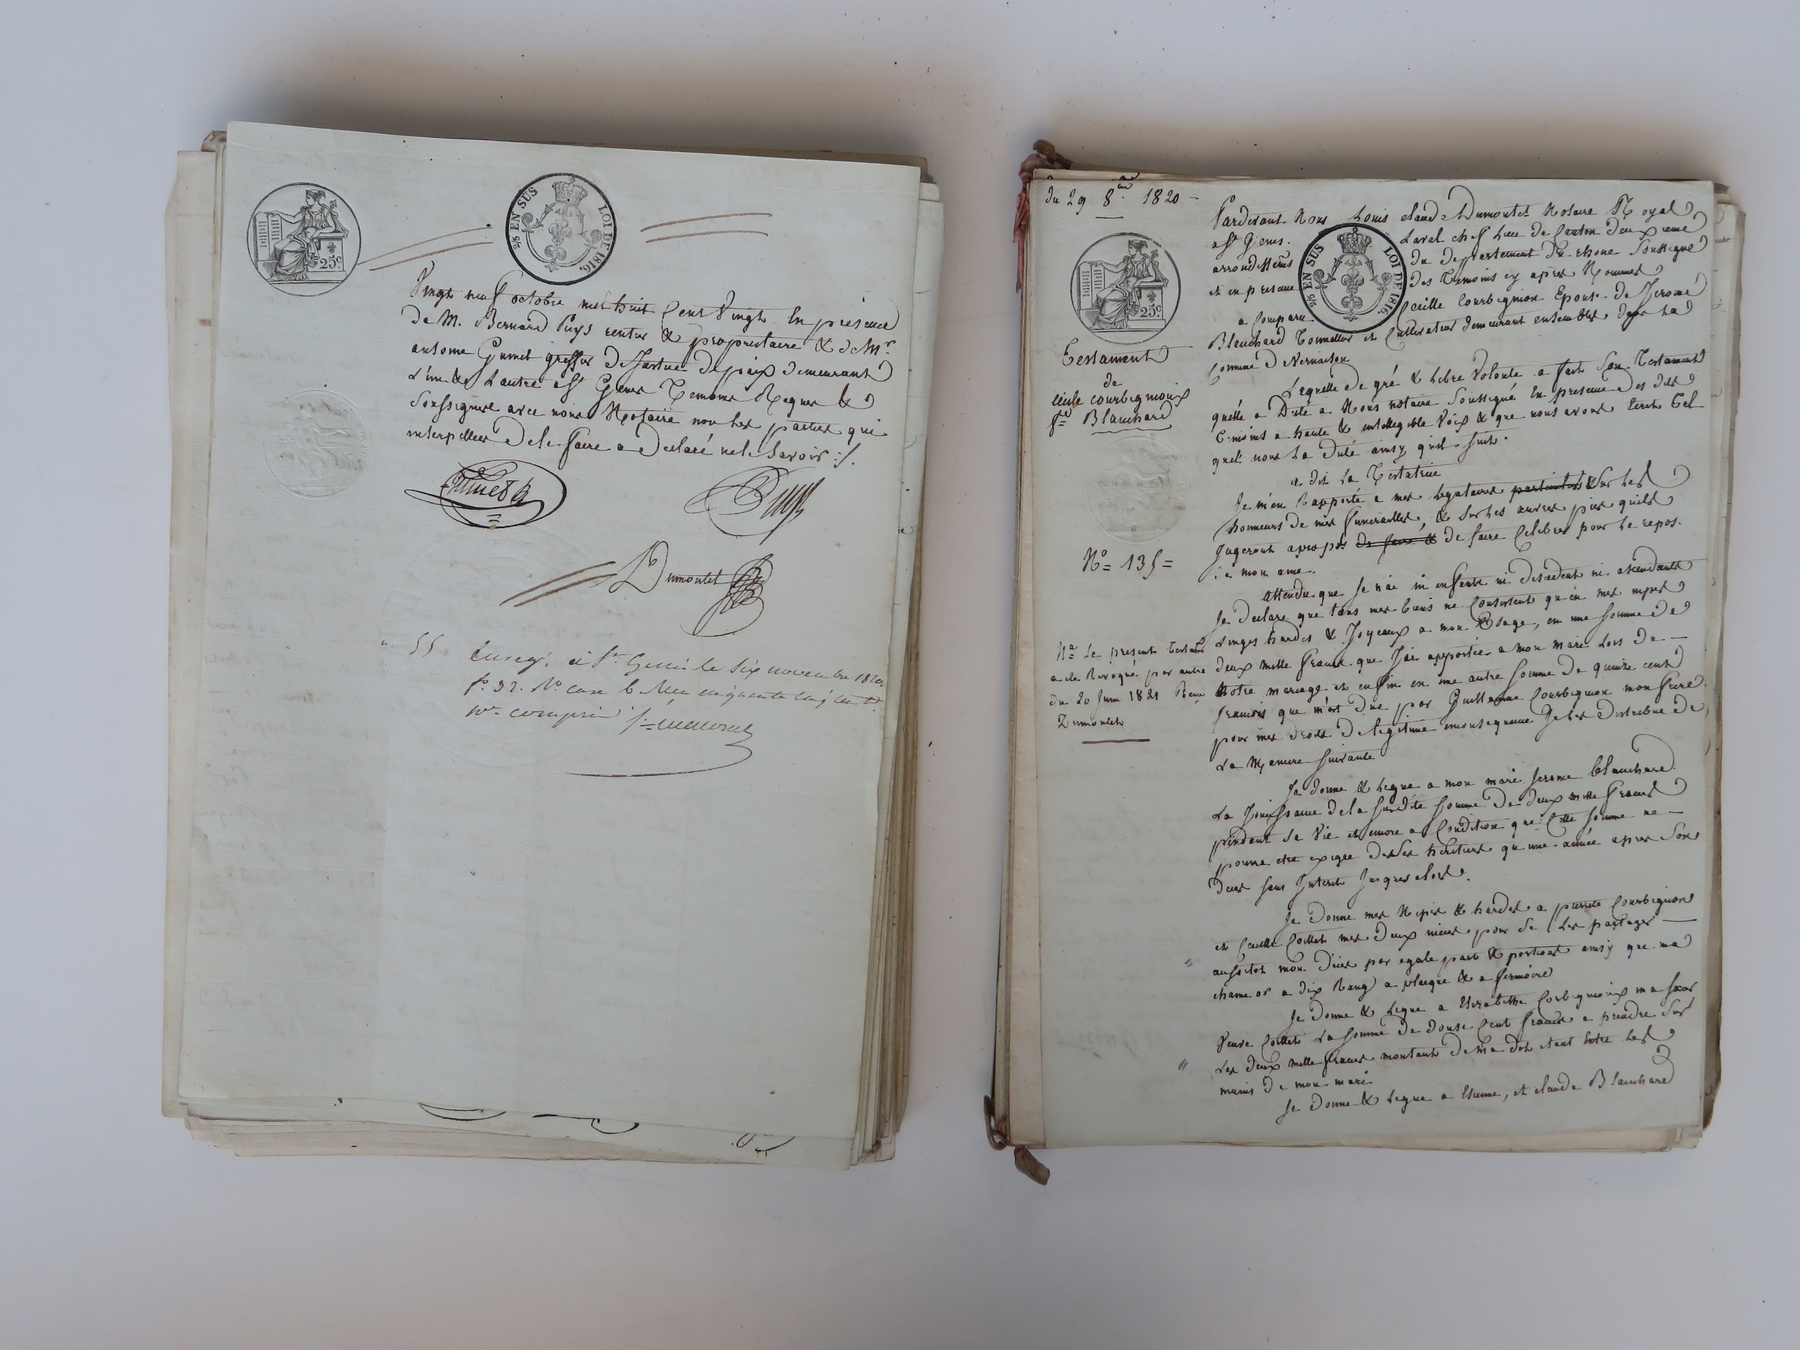 25c
25 EN SUS LOI DE 1816
Vingt neuf octobre mil huit Cent Vingt. En présence
de M. Bernard Puys rentier & propriétaire & de Mr.
antoine Guinet greffier de Justice de paix demeurant
L'un & L'autre a St Genis Temoins Requis &
Soussignés avec nous Notaire non Les parties qui
interpellées de le faire a declaré ne le Savoir :/.
Guinet
Puys
Dumontet
55
Enregé. à St. Genis le six novembre 1820
fo. 32. Ro. case 6. Reçu cinquante cinq
compris
du 29 8bre 1820
25c
25 EN SUS LOI DE 1816
Testament
de
Cécile courbignioux
fe Blanchard
No = 135 =
Na = Le présent Testament
a été Revoqué par autre
du 20 Juin 1821
Dumontet
Pardevant Nous Louis claude Dumontet Notaire Royal
a St Genis. Laval chef Lieu de Canton deuxieme
arrondissent du departement du rhone Soussigné
et en presence des Temoins cy après Nommés
a Comparu. Cecille Courbignion Epouse de Jerome
Blanchard Tonnellier et Cultivateur demeurant ensembles dans La
Commune de Vernaison
Lequelle de gré & Libre Volonté a fait Son Testament
quelle a Dité a Nous notaire Soussigné En presence des dits
Temoins a haute & intelligible Voix & que nous avons Ecrit Tel
quel nous La Dité ainsy quil suit.
a dit La Testatrice
Je m'en Rapporte a mes Legataires particuliers & Sur Les
honneurs de mes funerailles, & Sur Les œuvres pies quils
Jugeront apropos de faire & de faire Celebrer pour Le repos.
de mon ame.
attendu que Je n'ai ni enfants ni desendent ni asendants
Je Declare que tous mes biens ne Consistent qu'en mes nipes
Linges hardes & Joyeaux a mon Usage, en une Somme de
deux mille francs que J'ai apportée a mon mari Lors de
Notre mariage et enfin en une autre Somme de quinze cent
francs que m'est Due par Guillaume Courbignon mon frere
pour mes droits de Légitime enconsequence Je Les distribue de
La Maniere Suivante
Je donne & Legue a mon mari Jerome Blanchard
La Jouissance de la Susdite Somme de deux mille francs
pendant Sa Vie et encore a Condition que Cette Somme ne
pourra etre exigée de Ses heritiers qu'une année apres Son
deces sans Interets Jusques alors.
Je Donne mes Nipes & hardes a pierrette Courbignion
et Cecille Collet mes deux nieces pour Se Les partager
aussitot mon Déces par egale part & portions ainsy que ma
chaine or a dix Rang a plaque & a fermoire
Je donne & Legue a Elizabethe Corbignioux ma Sœur
Veuve Collet La Somme de douse Cent francs a prendre Sur
Les deux mille francs montant de Ma Dot etant Entre Les
mains de mon mari
Je Donne & Legue a Etienne, et claude Blanchard